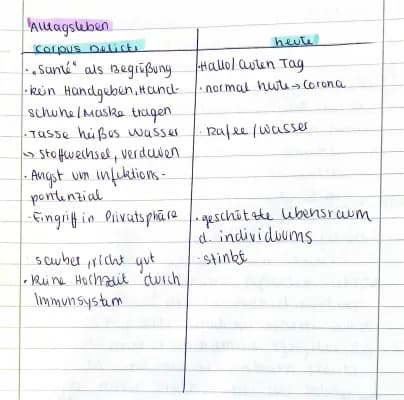 Alltagsleben
Corpus Delicti
heute
· „Santé" als Begrüßung
· Hallo/Guten Tag
· kein Handgeben, Hand-
· normal heute → Corona
schuhe/Maske tragen
· Tasse heißes Wasser
· Kafee/Wasser
↳ Stoffwechsel, verdauen
· Angst vor Infektions-
pontenzial
· Eingriff in Privatsphäre
· geschützte Lebensraum
d. individuums
sauber, richt gut
· stinkt
· keine Hochzeit durch
Immunsystem